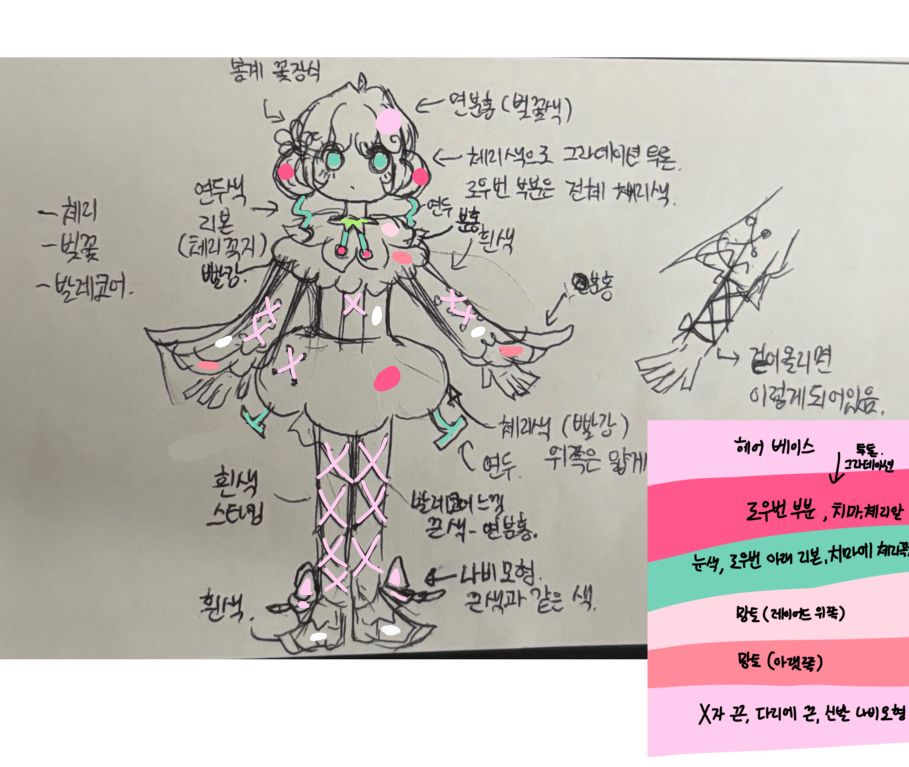 봉계 꽃장식
연분홍 (벚꽃색)
체리색으로 그라데이션 투톤.
로우번 부분은 전체 체리색.
- 체리
- 벚꽃
- 발레코어.
연두색
리본
(체리꼭지)
빨강.
연두
분홍
흰색
연분홍
걷어올리면
이렇게되어있음.
체리색 (빨강)
위쪽은 얇게
연두.
흰색
스타킹
발레코어 느낌
끈색 - 연분홍.
나비모형.
끈색과 같은 색.
흰색.
헤어 베이스
투톤.
그라데이션
로우번 부분, 치마, 체리알
눈색, 로우번 아래 리본, 치마에 체리꼭
망토 (레이어드 위쪽)
망토 (아랫쪽)
X자 끈, 다리에 끈, 신발 나비모형